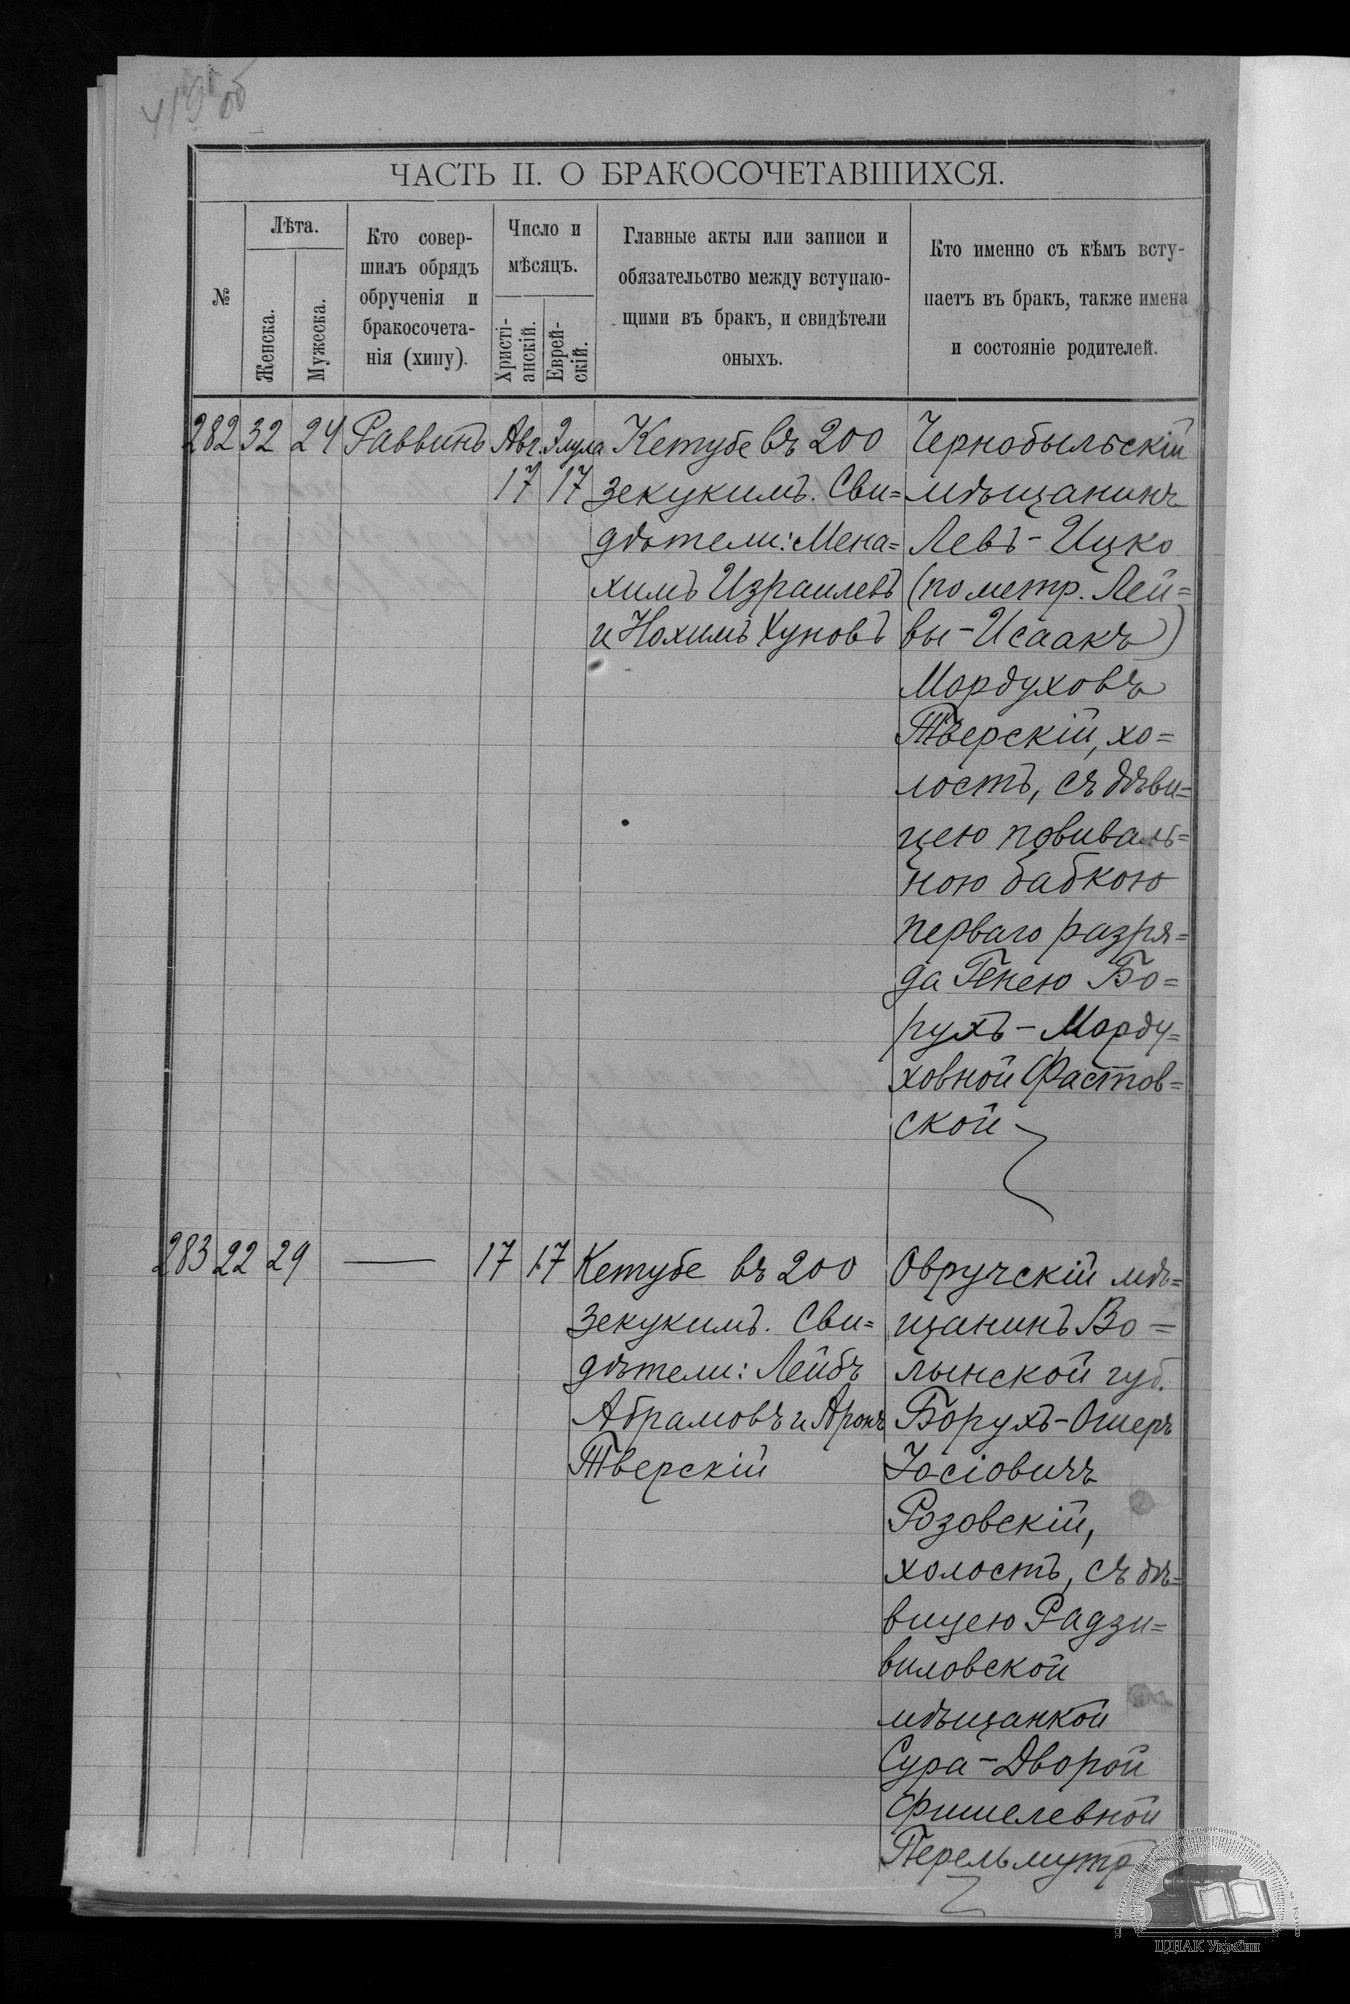 419 об
ЧАСТЬ II. О БРАКОСОЧЕТАВШИХСЯ.
№
Лѣта.
Женска.
Мужеска.
Кто совер-
шилъ обрядъ
обрученія и
бракосочета-
нія (хипу).
Число и
мѣсяцъ.
Христі-
анскій.
Еврей-
скій.
Главные акты или записи и
обязательство между вступаю-
щими въ бракъ, и свидѣтели
оныхъ.
Кто именно съ кѣмъ всту-
паетъ въ бракъ, также имена
и состояніе родителей.
282 32 24 Раввинъ Авг. Элула
17 17
Кетубе въ 200
зекукимъ. Сви=
дѣтели: Мена=
химъ Израилевъ
и Нохимъ Хуновъ
Чернобыльскій
мѣщанинъ
Левъ-Ицко
(по метр. Лей=
вы-Исаакъ)
Мордуховъ
Тверскій, хо=
лостъ, съ дѣви=
цею повиваль=
ною бабкою
перваго разря=
да Генею Бо=
рухъ-Морду=
ховной Фастов=
ской
283 22 29 — 17 17
Кетубе въ 200
зекукимъ. Сви=
дѣтели: Лейбъ
Абрамовъ и Аронъ
Тверскій
Овручскій мѣ=
щанинъ Во=
лынской губ.
Борухъ-Ошеръ
Іосіовичъ
Розовскій,
холостъ, съ дѣ=
вицею Радзи=
виловской
мѣщанкой
Сура-Дворой
Фишелевной
Перельмутр
ЦДІАК України